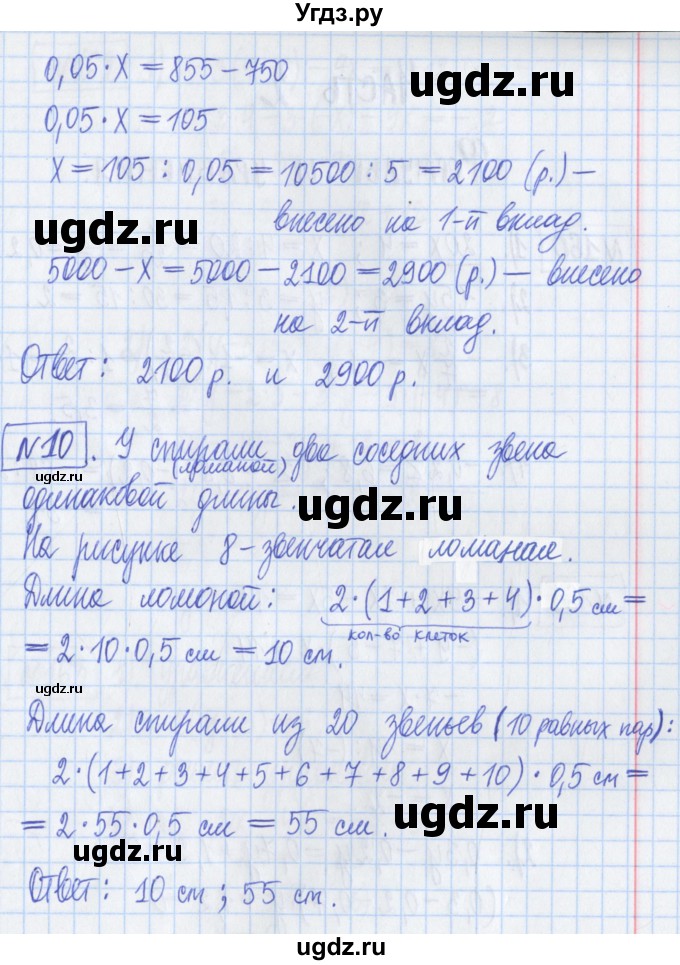 Угдз.ру
0,05·X = 855 – 750
ugdz.ru
0,05·X = 105
X = 105 : 0,05 = 10500 : 5 = 2100 (р.) –
внесено на 1-й вклад.
ugdz.ru
ugdz.ru
5000 – X = 5000 – 2100 = 2900 (р.) – внесено
на 2-й вклад.
Ответ: 2100 р. и 2900 р.
ugdz.ru
№10. У спирали два соседних звена
(ломаной)
ugdz.ru
одинаковой длины.
ugdz.ru
На рисунке 8-звенчатая ломаная.
Длина ломоной: 2·(1+2+3+4)·0,5 см =
ugdz.ru
кол-во клеток
= 2·10·0,5 см = 10 см.
ugdz.ru
Длина спирали из 20 звеньев (10 равных пар):
2·(1+2+3+4+5+6+7+8+9+10)·0,5 см =
= 2·55·0,5 см = 55 см.
ugdz.ru
ugdz.ru
Ответ: 10 см; 55 см.
ugdz.ru
ugdz.ru